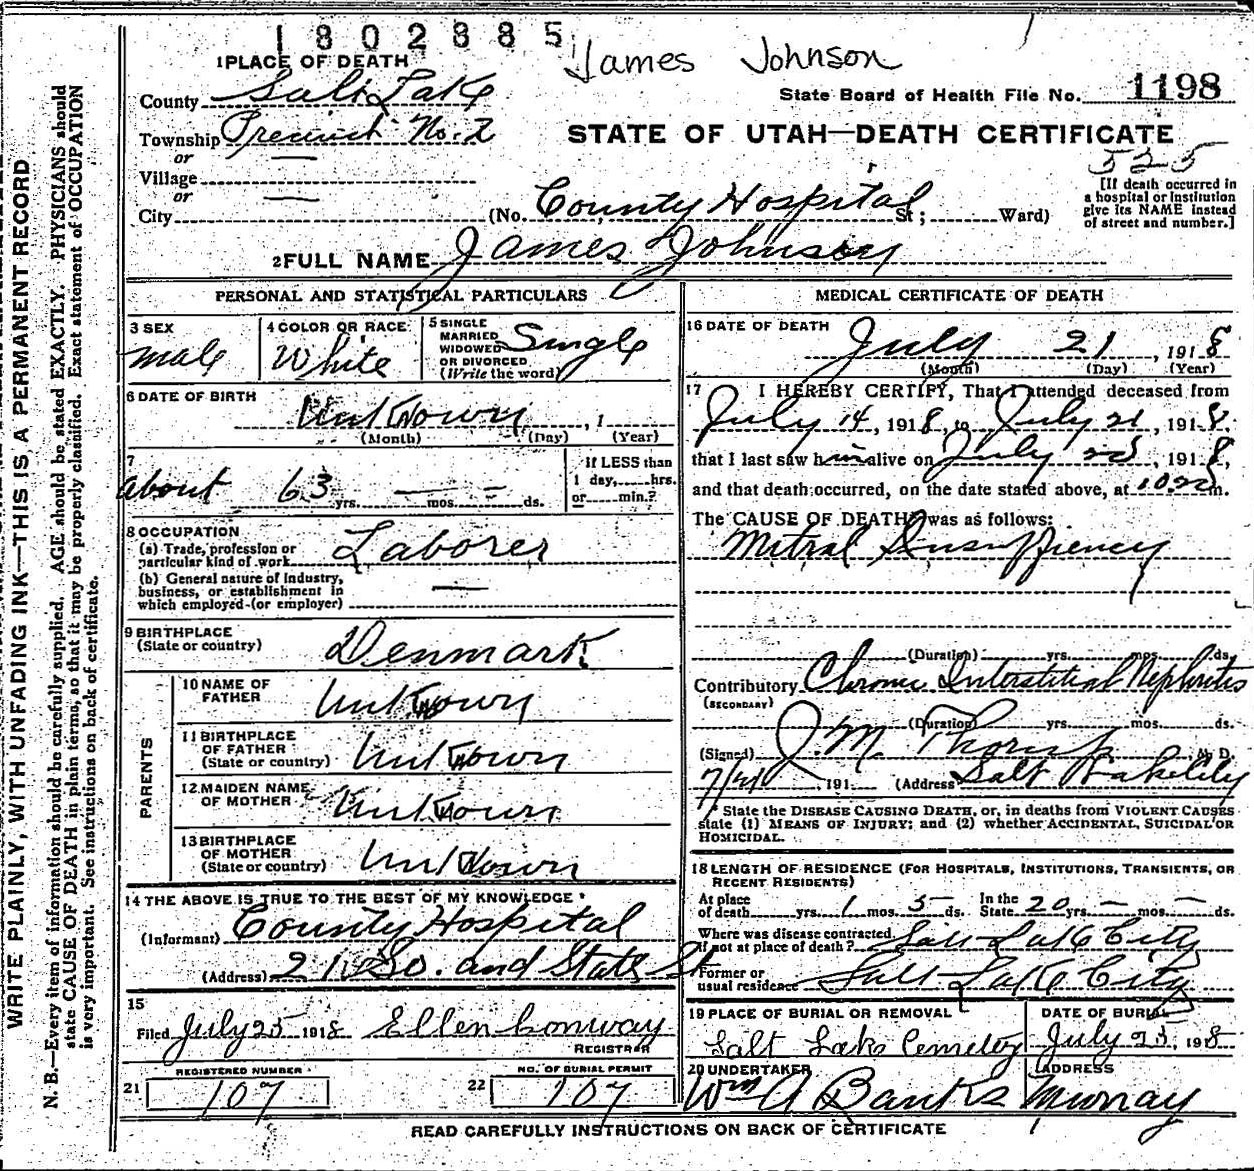 1802885
James Johnson
1 PLACE OF DEATH
County Salt Lake
State Board of Health File No. 1198
Township Precinct No. 2
STATE OF UTAH—DEATH CERTIFICATE
or
525
Village
or
City (No. County Hospital St ; Ward)
[If death occurred in
a hospital or institution
give its NAME instead
of street and number.]
2 FULL NAME James Johnson
PERSONAL AND STATISTICAL PARTICULARS
3 SEX
male
4 COLOR OR RACE
White
5 SINGLE
MARRIED
WIDOWED
OR DIVORCED
(Write the word)
Single
6 DATE OF BIRTH
Unknown , 1
(Month) (Day) (Year)
7
about 63 yrs. — mos. — ds.
If LESS than
1 day, hrs.
or min.?
8 OCCUPATION
(a) Trade, profession or
particular kind of work Laborer
(b) General nature of Industry,
business, or establishment in
which employed (or employer) —
9 BIRTHPLACE
(State or country) Denmark
PARENTS
10 NAME OF
FATHER Unknown
11 BIRTHPLACE
OF FATHER
(State or country) Unknown
12 MAIDEN NAME
OF MOTHER Unknown
13 BIRTHPLACE
OF MOTHER
(State or country) Unknown
14 THE ABOVE IS TRUE TO THE BEST OF MY KNOWLEDGE
(Informant) County Hospital
(Address) 21 So. and State St
15
Filed July 25 1918 Ellen Conway
REGISTRAR
REGISTERED NUMBER
21 107
NO. OF BURIAL PERMIT
22 107
MEDICAL CERTIFICATE OF DEATH
16 DATE OF DEATH
July 21 , 1918
(Month) (Day) (Year)
17 I HEREBY CERTIFY, That I attended deceased from
July 14, 1918, to July 21, 1918,
that I last saw him alive on July , 1918,
and that death occurred, on the date stated above, at m.
The CAUSE OF DEATH was as follows:
Mitral Insuffiency
(Duration) yrs. mos. ds.
Contributory Chronic Interstitial Nephritis
(SECONDARY)
(Duration) yrs. mos. ds.
(Signed) J. M. M. D.
, 191 (Address) Salt Lake City
State the DISEASE CAUSING DEATH, or, in deaths from VIOLENT CAUSES
state (1) MEANS OF INJURY; and (2) whether ACCIDENTAL, SUICIDAL OR
HOMICIDAL.
18 LENGTH OF RESIDENCE (FOR HOSPITALS, INSTITUTIONS, TRANSIENTS, OR
RECENT RESIDENTS)
At place
of death yrs. 1 mos. 5 ds. In the
State 20 yrs. — mos. — ds.
Where was disease contracted
if not at place of death? Salt Lake City
Former or
usual residence Salt Lake City
19 PLACE OF BURIAL OR REMOVAL
Salt Lake Cemetery
DATE OF BURIAL
July 25, 1918
20 UNDERTAKER
Wm A Banks
ADDRESS
Murray
READ CAREFULLY INSTRUCTIONS ON BACK OF CERTIFICATE
WRITE PLAINLY, WITH UNFADING INK—THIS IS A PERMANENT RECORD
N. B.—Every item of information should be carefully supplied. AGE should be stated EXACTLY. PHYSICIANS should
state CAUSE OF DEATH in plain terms, so that it may be properly classified. Exact statement of OCCUPATION
is very important. See instructions on back of certificate.